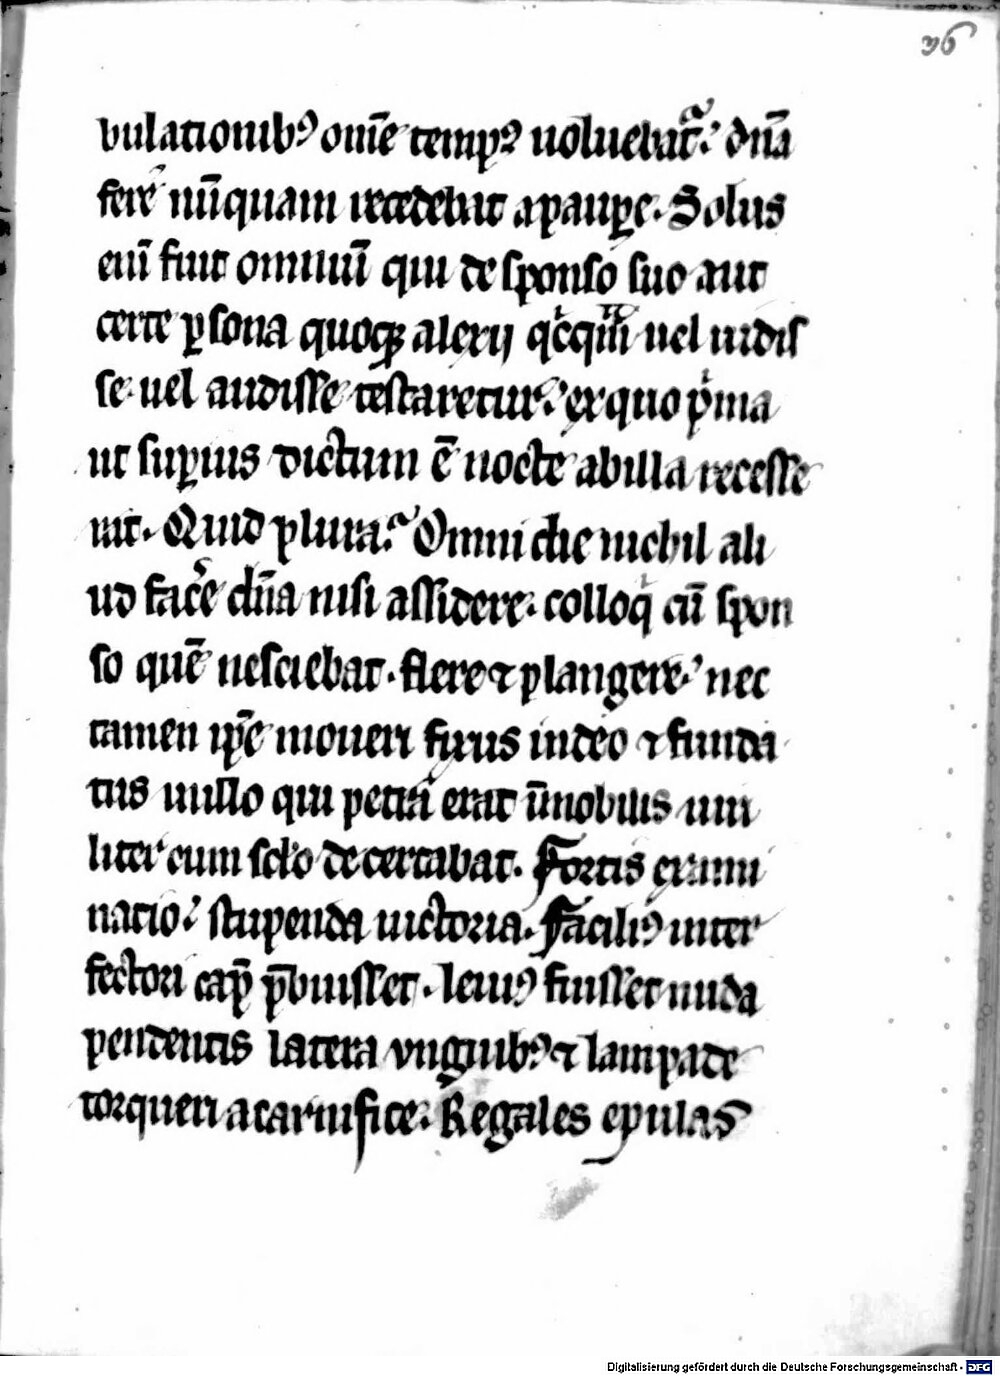 36
bulationibꝰ om̄e tempꝰ uoluebat᷑. dn̄a
fere nū̄quam recedebat a pauꝑe. Solus
eni᷑ fuit omniū qui de sponso suo aut
certe ꝑsona quoqꝫ alexij qͥcqͣm uel uidis
se uel audisse testaretur. ex quo pͥma
ut suꝑius dictum ē nocte ab illa recesse
rat. Quid plura? Omni die nichil ali
ud facͤe dn̄a nisi assidere. colloqͥ cū spon
so quē nesciebat. flere ⁊ plangere. nec
tamen ip̄e moueri fixus in deo ⁊ funda
tus nullo qui petra erat īmobilis uiri
liter cum sc̄lo decertabat. Fortis exami
natio. stupenda uictoria. Faciliꝰ inter
fectori cap̄ p̄buisset. leuiꝰ fuisset nuda
pendentis latera vnguibꝰ ⁊ lampade
torqueri a carnifice. Regales epulas
Digitalisierung gefördert durch die Deutsche Forschungsgemeinschaft - DFG